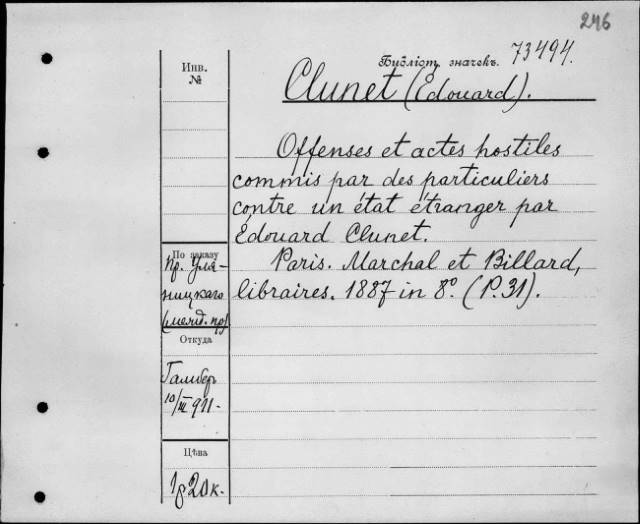 246
Библіот. значекъ. 73494.
Инв.
№
Clunet (Edouard).
Offenses et actes hostiles
commis par des particuliers
contre un état étranger par
Édouard Clunet.
Paris. Marchal et Billard,
libraires. 1887 in 8º. (P. 31).
По заказу
Пр. Уля-
ницкаго
(межд. пр)
Откуда
10/III 911.
Цѣна
1р 20к.